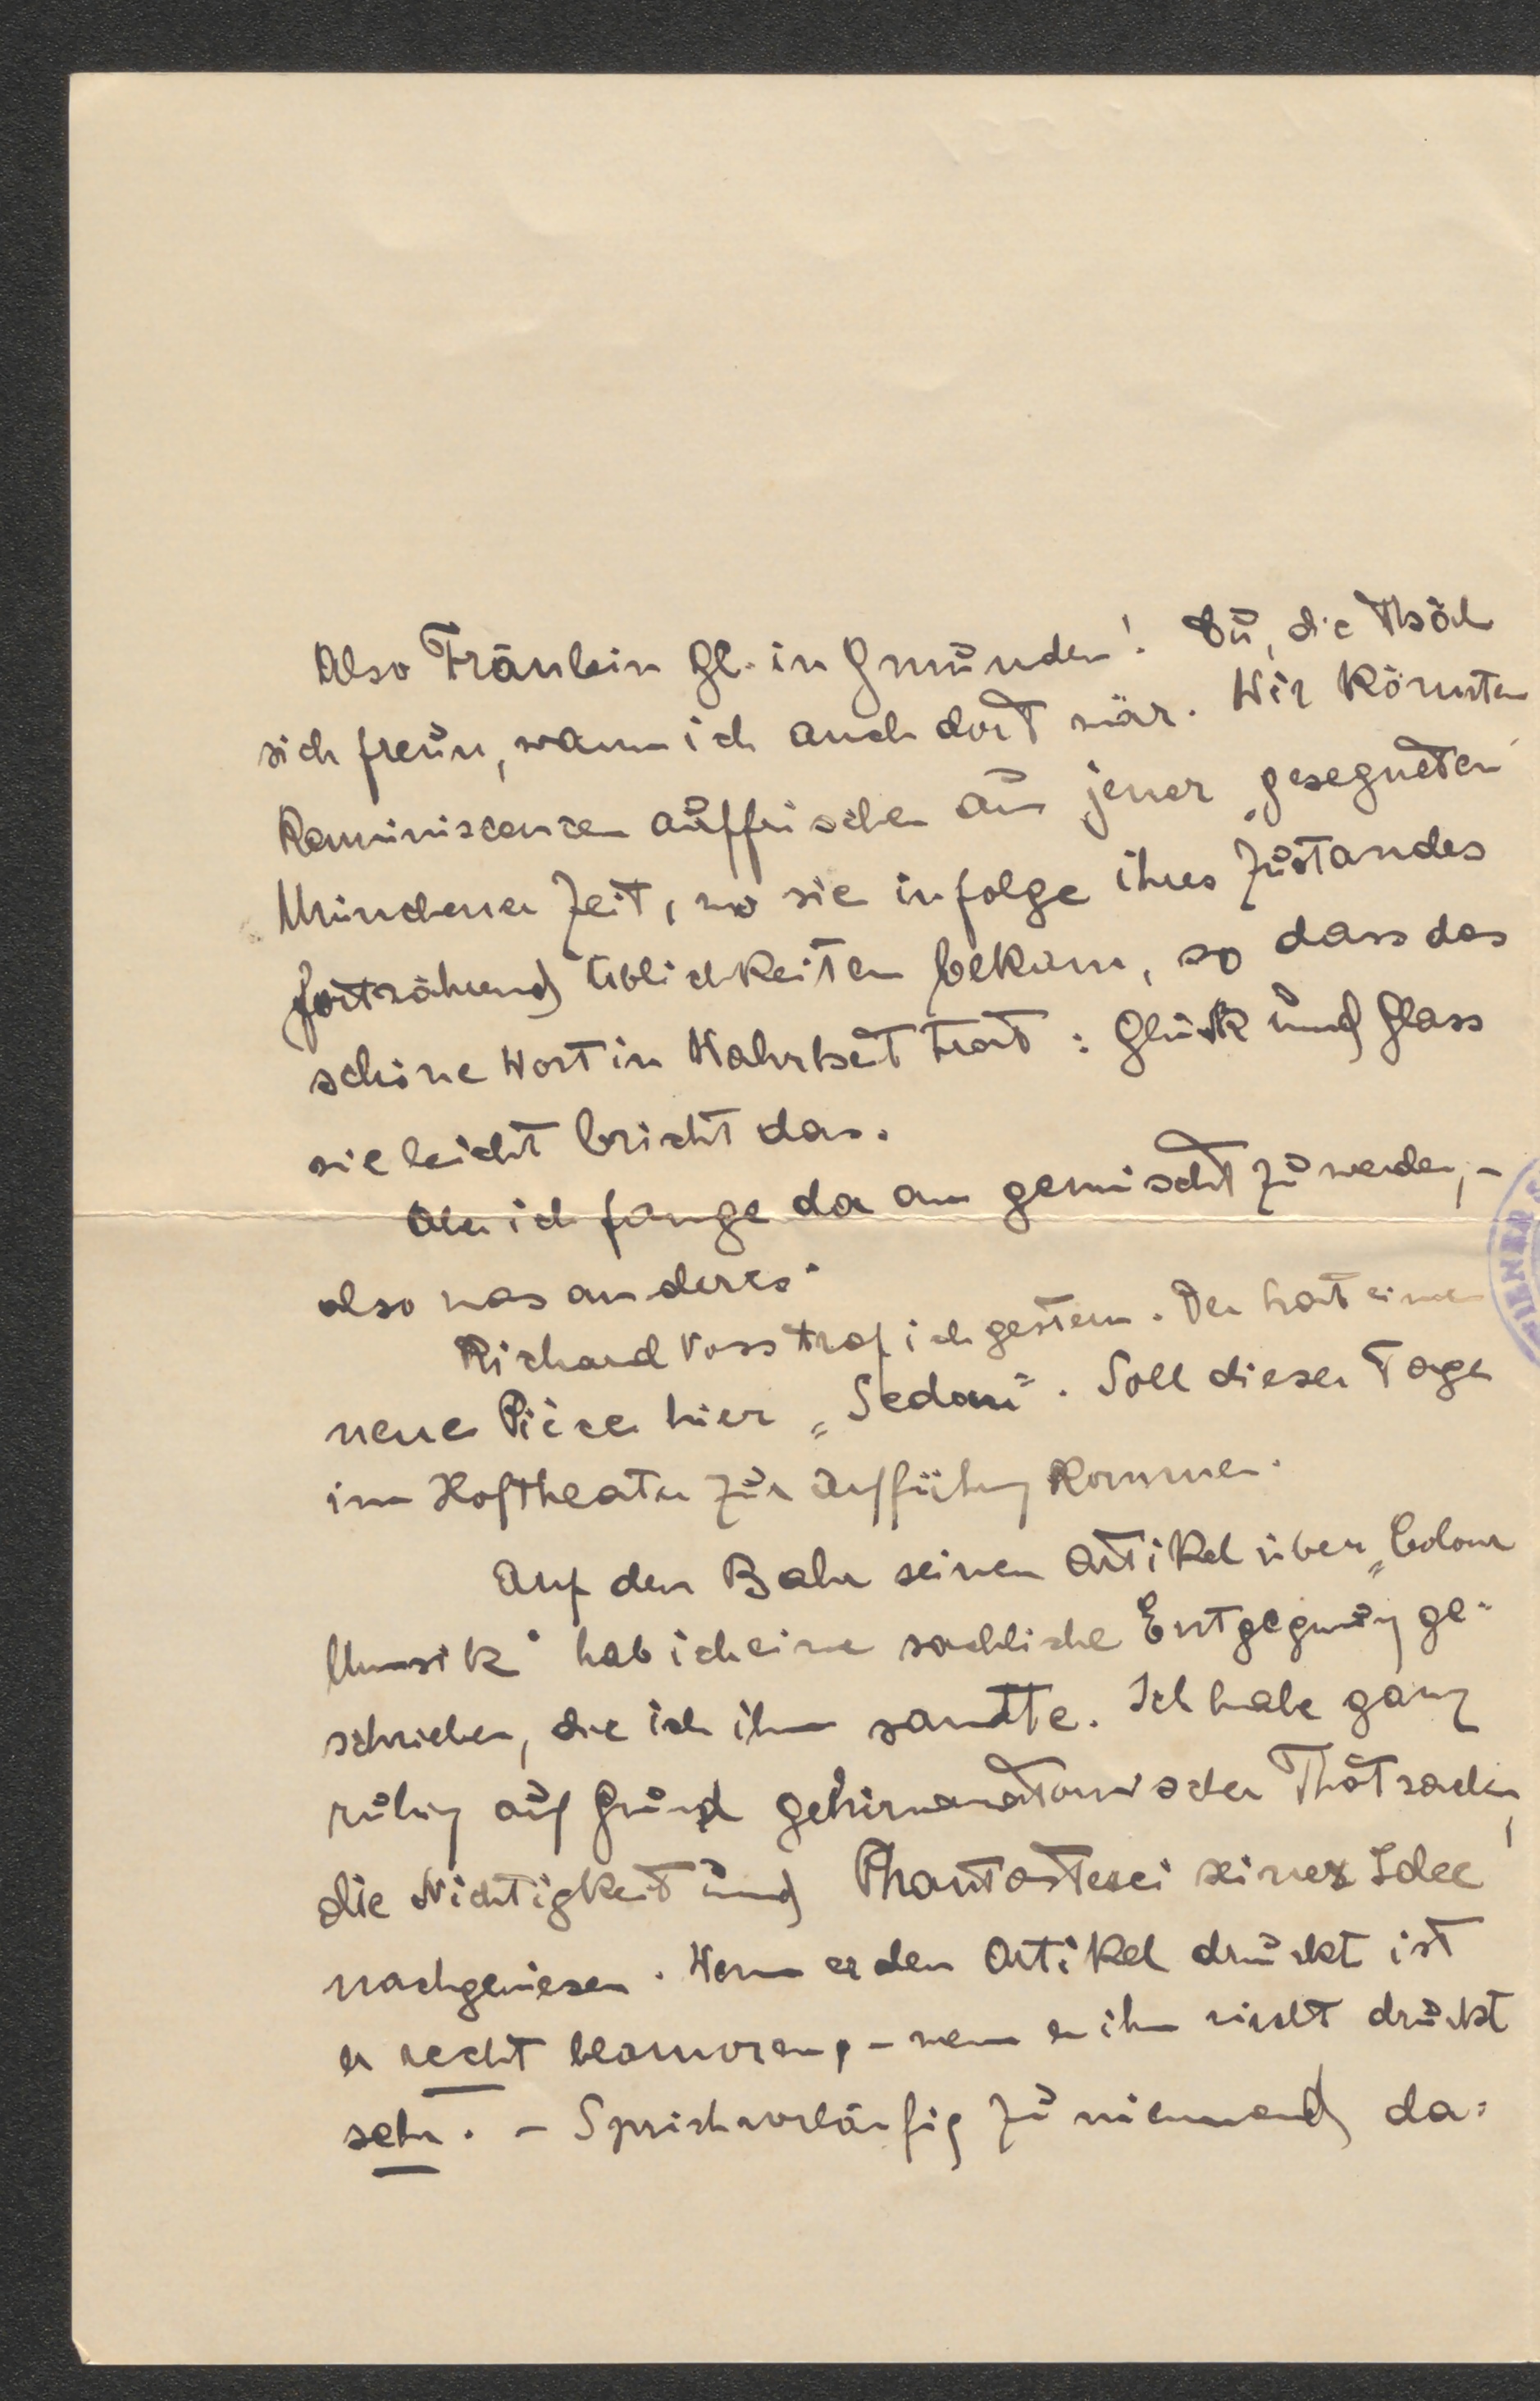 Also Fräulein Gl. in Gmünden! Du, die thät
sich freun, wann ich auch dort wär. Wir könnten
Reminiscencen auffrischen aus jener „gesegneten“
Münchener Zeit, wo sie infolge ihres Zustandes
fortwährend Üblichkeiten bekam, so dass das
schöne Wort in Wahrheit trat: Glück und Glass
wie leicht bricht das.
Aber ich fange da an gemischt zu werden, –
also was anderes.
Richard Voss traf ich gestern. Der hat eine
neue Pièce hier „Sedan“. Soll dieser Tage
im Hoftheater zur Aufführung kommen.
Auf den Bahr seinen Artikel über „Colour
Musik“ hab ich eine sachliche Entgegnung ge-
schrieben, die ich ihm sandte. Ich habe ganz
ruhig auf Grund gehirnanatomischer Thatsachen,
die Nichtigkeit und Phantasterei seiner Idee
nachgewiesen. Wenn er den Artikel druckt ist
er recht blamoren, – wenn er ihn nicht druckt
sehr. – Sprich vorläufig zu niemand da-
WIENER